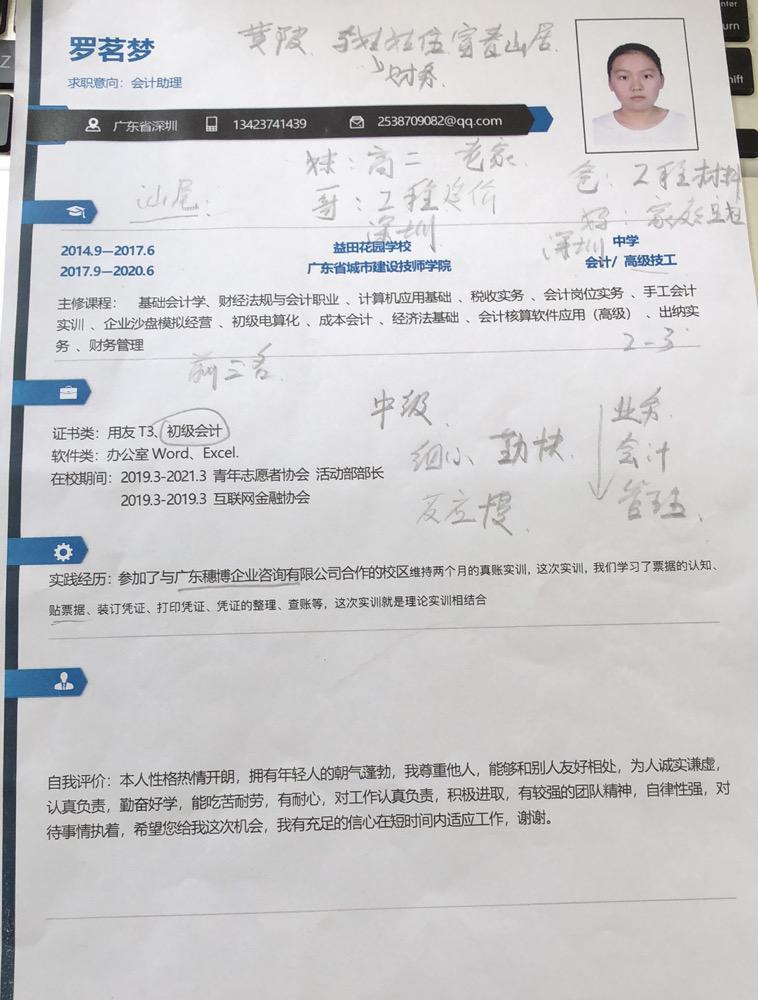 罗茗梦
求职意向：会计助理
黄陂 住富春山居
财务
广东省深圳 13423741439 2538709082@qq.com
妹：高二 老家
汕尾 哥：工程造价
深圳
爸：工程材料
妈：家庭
深圳
2014.9—2017.6 益田花园学校 中学
2017.9—2020.6 广东省城市建设技师学院 会计/ 高级技工
主修课程： 基础会计学、财经法规与会计职业 、计算机应用基础 、税收实务 、会计岗位实务 、手工会计
实训 、企业沙盘模拟经营 、初级电算化 、成本会计 、经济法基础 、会计核算软件应用（高级） 、出纳实
务 、财务管理
2-3
前三名
证书类：用友 T3、初级会计
软件类：办公室 Word、Excel.
在校期间： 2019.3-2021.3 青年志愿者协会 活动部部长
2019.3-2019.3 互联网金融协会
中级
细心、勤快
反应慢
业务
会计
管理
实践经历：参加了与广东穗博企业咨询有限公司合作的校区维持两个月的真账实训，这次实训，我们学习了票据的认知、
贴票据、装订凭证、打印凭证、凭证的整理、查账等，这次实训就是理论实训相结合
自我评价：本人性格热情开朗，拥有年轻人的朝气蓬勃，我尊重他人，能够和别人友好相处，为人诚实谦虚，
认真负责，勤奋好学，能吃苦耐劳，有耐心，对工作认真负责，积极进取，有较强的团队精神，自律性强，对
待事情执着，希望您给我这次机会，我有充足的信心在短时间内适应工作，谢谢。